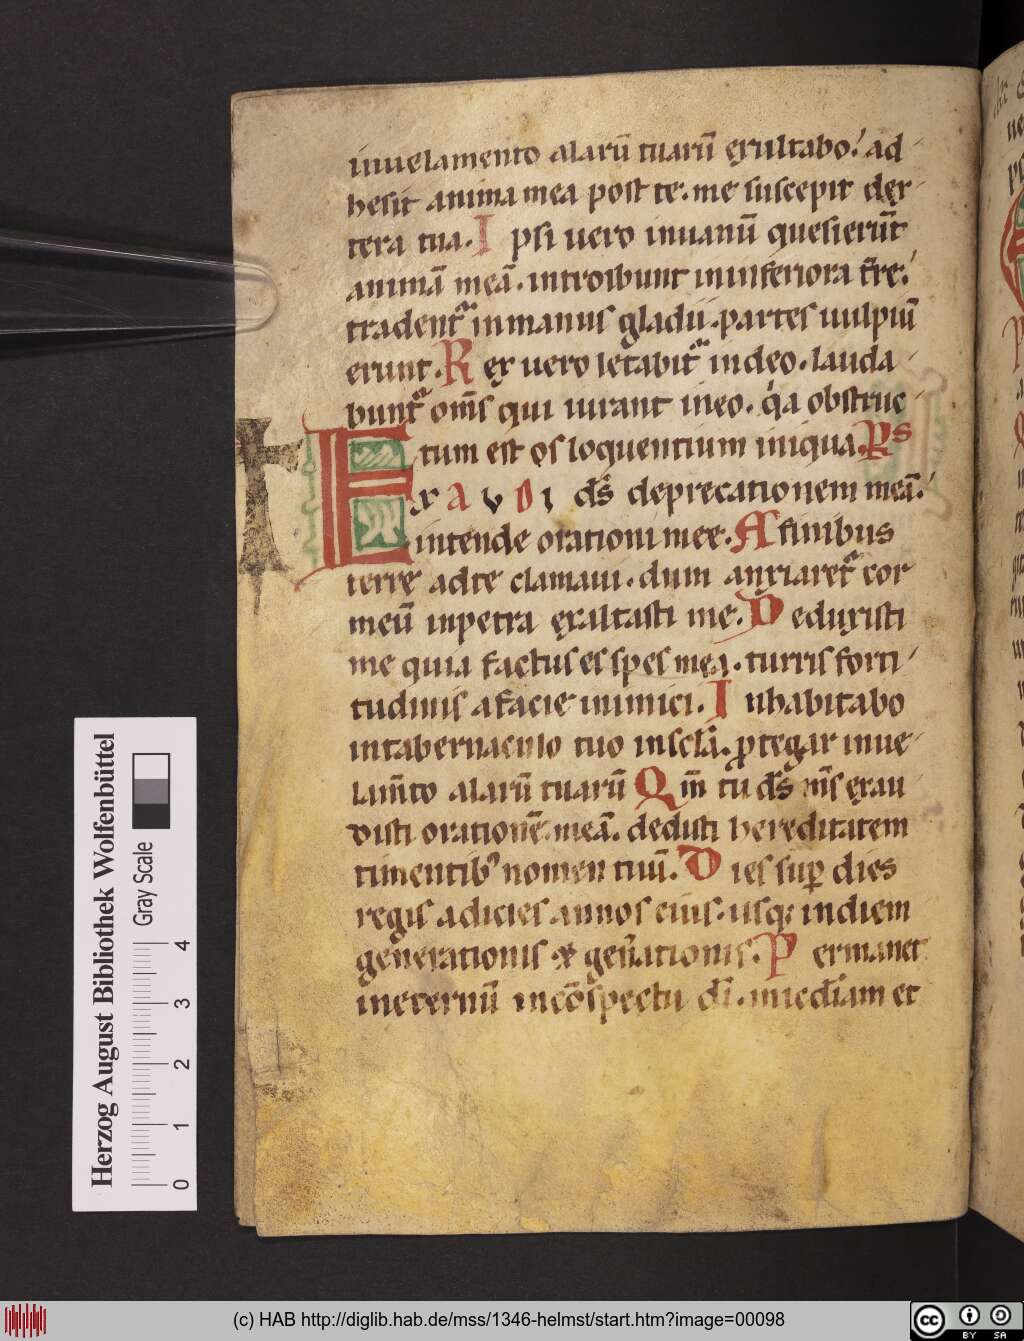 inuelamento alarū tuarū exultabo. ad
hesit anima mea post te. me suscepit dex
tera tua. I psi uero inuanū quesierūt
animā meā. introibunt ininferiora t̄re.
tradent᷑ inmanus gladii. partes uulpiū
erunt. R ex uero letabit᷑ indeo. lauda
bunt᷑ om̄s qui iurant ineo. q̇a obstruc
tum est os loquentium iniqua. Ps
EXAVDI d̄s deprecationem meā.
intende orationi mee. A finibus
terre adte clamaui. dum anxiaret᷑ cor
meū inpetra exaltasti me. D eduxisti
me quia factus es spes mea. turris forti
tudinis afacie inimici. I nhabitabo
intabernaculo tuo insc̄la. ꝓtegar inue
lam̄to alarū tuarū Qm̄ tu d̄s m̄s exau
disti orationē meā. dedisti hereditatem
timentibꝰ nomen tuū. D ies suꝑ dies
regis adicies annos eius. usq; indiem
generationis & gen̄ationis. P ermanet
ineternū incōspectu dī. mīcdīam et
Herzog August Bibliothek Wolfenbüttel
Gray Scale
0 1 2 3 4
(c) HAB http://diglib.hab.de/mss/1346-helmst/start.htm?image=00098
cc BY SA